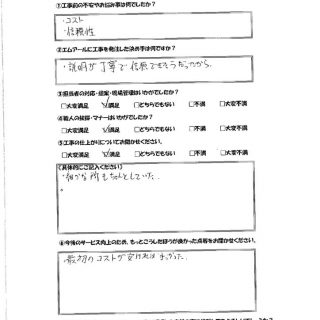 ①工事前の不安やお悩み事は何でしたか?
・コスト
・信頼性
②エムアールに工事を発注した決め手は何ですか?
・説明が丁寧で信頼できそうだったから。
③担当者の対応・提案・現場管理はいかがでしたか?
□大変満足 ☑満足 □どちらでもない □不満 □大変不満
④職人の挨拶・マナーはいかがでしたか?
□大変満足 ☑満足 □どちらでもない □不満 □大変不満
⑤工事の仕上がりについてお聞かせください。
□大変満足 ☑満足 □どちらでもない □不満 □大変不満
(具体的にご記入ください)
・細かな所もちゃんとしていた。
⑥今後のサービス向上のため、もっとこうしたほうが良かった点等をお聞かせください。
・最初のコストが